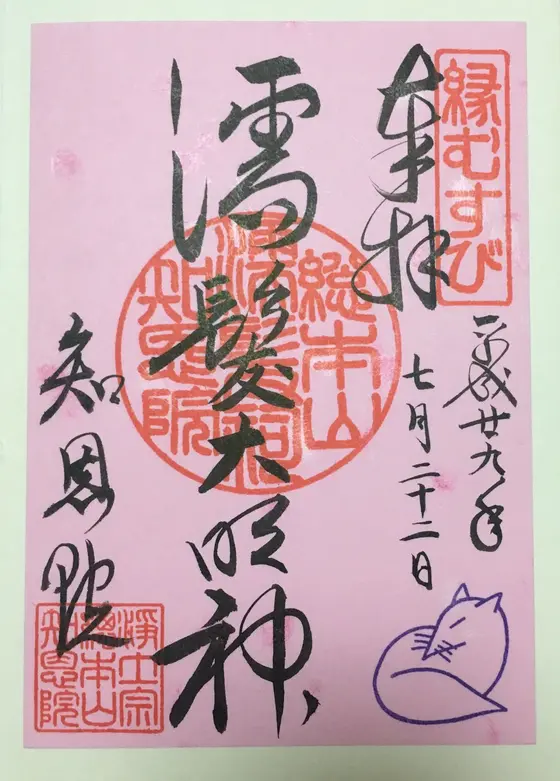 縁むすび
奉拝
平成廿九年
七月二十二日
濡髪大明神
総本山
濡髪祠
知恩院
知恩院
浄土宗
総本山
知恩院